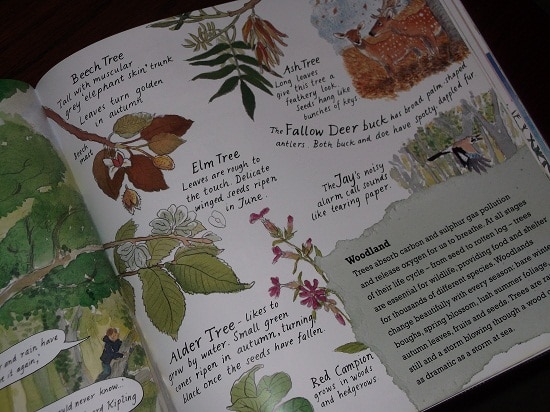 Beech Tree
Tall with muscular
grey 'elephant skin' trunk
Leaves turn golden
in autumn
beech
mast
Ash Tree
Long leaves
give this tree a
feathery look.
Seeds hang like
bunches of keys
The Fallow Deer buck has broad palm-shaped
antlers. Both buck and doe have spotty dappled fur
Elm Tree
Leaves are rough to
the touch. Delicate
winged seeds ripen
in June.
The Jay's noisy
alarm call sounds
like tearing paper.
Alder Tree - Likes to
grow by water. Small green
cones ripen in autumn, turning
black once the seeds have fallen.
Red Campion
grows in woods
and hedgerows
Woodland
Trees absorb carbon and sulphur gas pollution
and release oxygen for us to breathe. At all stages
of their life cycle – from seed to rotten log – trees
are essential for wildlife, providing food and shelter
for thousands of different species. Woodlands
change beautifully with every season: bare winter
boughs, spring blossom, lush summer foliage,
autumn leaves, fruits and seeds. Trees are
still and a storm blowing through a wood
as dramatic as a storm at sea.
and rain have
it again,
ould never know...
ard Kipling